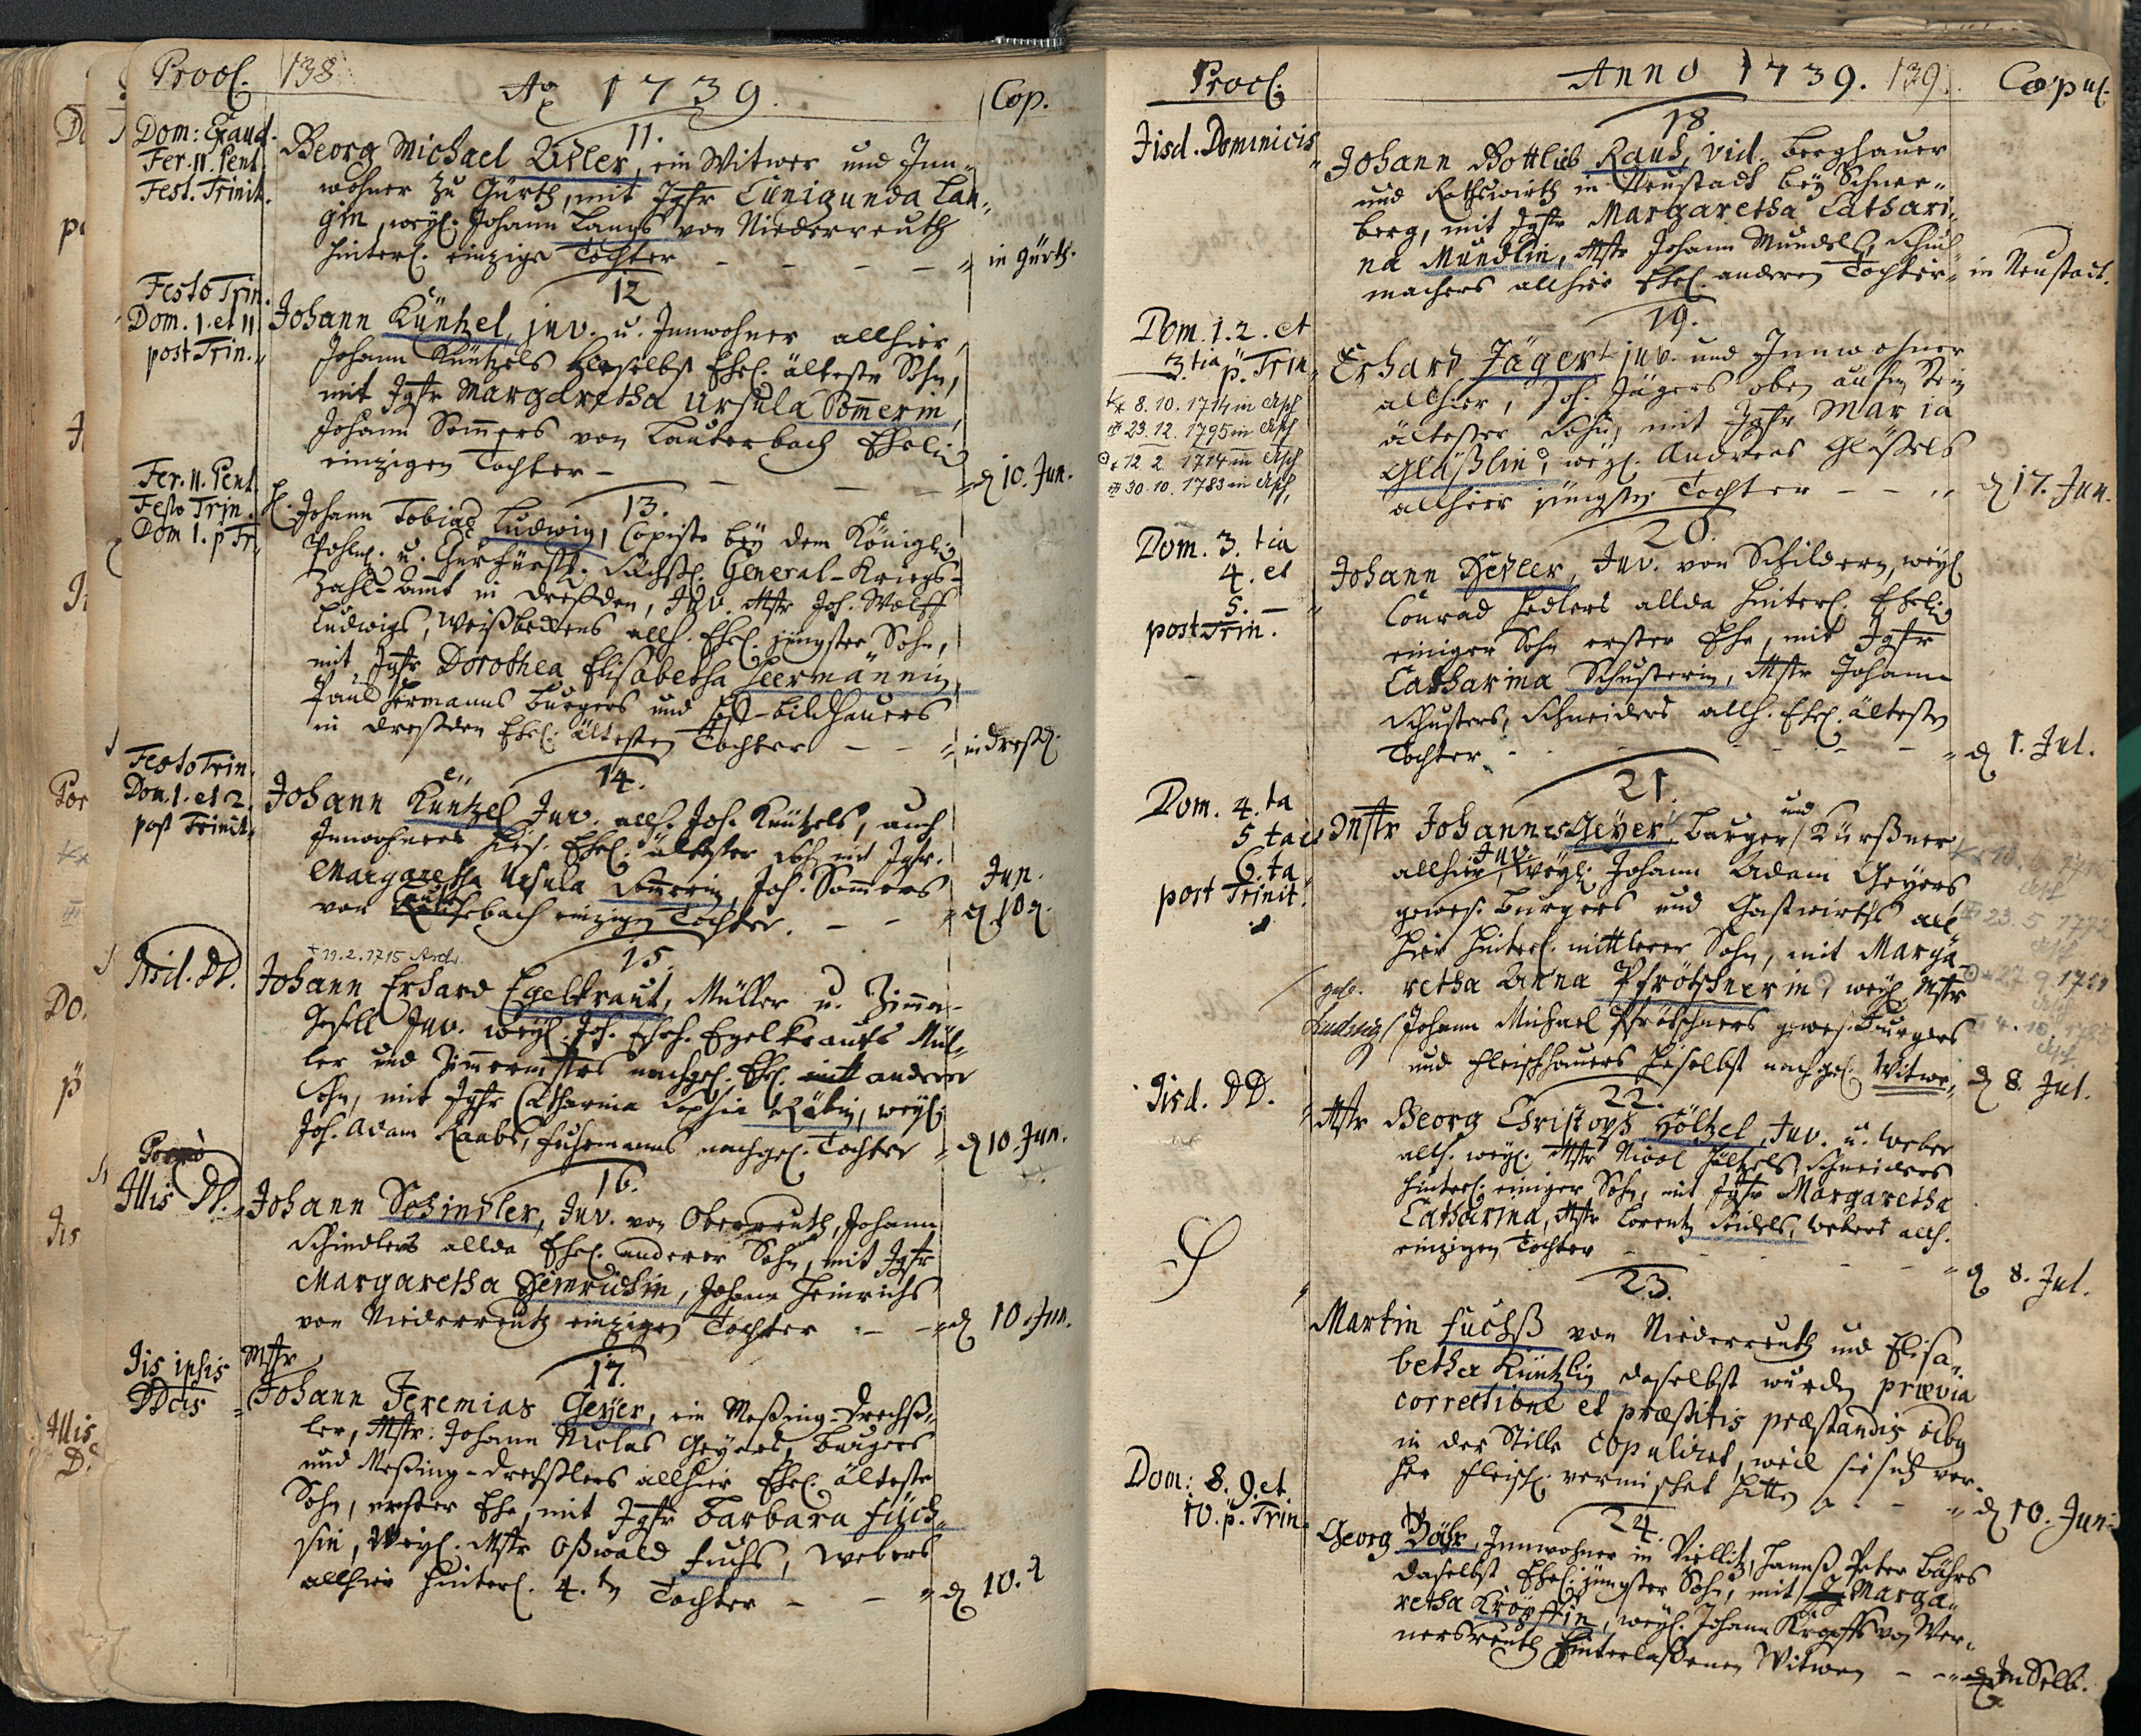 Procl.
138
Aō 1739.
Cop.
Dom: Exaud.
Fer. II. Pent.
Fest. Trinit.
11.
Georg Michael Adler, ein Witwer und Inn-
wohner zu Gürth, mit Jgfr Cunigunda Lan-
gin, weyl. Johann Langs von Niederreuth
hinterl. einzige Tochter
in Gürth.
Festo Trin.
Dom. 1. et II
post Trin.
12
Johann Küntzel, juv. u. Innwohner allhier,
Johann Küntzels daselbst Ehel. älteste Sohn,
mit Jgfr Margaretha Ursula Som̄erin,
Johann Som̄ers von Lauterbach Ehelich
einzigen Tochter
d 10. Jun.
Fer. II. Pent
Festo Trin.
Dom 1. p Tr.
13.
Johann Tobias Ludwig, Copiste bey dem Königlich
Pohln. u. Churfürstl. Sächßl. General-Kriegs-
Zahl-Amt in Dreßden, Juv. Mstr Joh. Wolff
Ludwigs, Weißbeckens allh. Ehel. jüngster Sohn,
mit Jgfr Dorothea Elisabetha Heermännin,
Paul Hermanns Burgers und Bildhauers
in Dreßden Ehel. ältesten Tochter
in Dreßd.
Festo Trin.
Dom. 1. et 2.
post Trinit.
14.
Johann Küntzel Juv. allh. Joh. Küntzels, auch
Innwohners hies. Ehel. ältester Sohn mit Jgfr.
Margaretha Ursula Som̄erin, Joh. Som̄ers
von Lauterbach einzigen Tochter.
Jun.
d 10
Iisd. DD.
* 11.2.1715
15.
Johann Erhard Egelkraut, Müller u. Zimmer-
Gesell Juv. weyl. Joh. Joh. Egelkrauts Mül-
ler und Zimmermstrs nachgel. Ehel. andrer
Sohn, mit Jgfr Catharina Sophia Räbin, weyl.
Joh. Adam Raabs, Fuhrmanns nachgel. Tochter
d 10. Jun.
Illis DD.
16.
Johann Schindler, Juv. von Oberreuth, Johann
Schindlers allda Ehel. anderer Sohn, mit Jgfr
Margaretha Heinrichin, Johann Heinrichs
von Niederreuth einzigen Tochter
d 10. Jun.
Iis ipsis
DDcis
Mstr
17.
Johann Jeremias Geyer, ein Meßing-Drechß-
ler, Mstr: Johann Niclas Geyers, Burgers
und Meßing-Drechßlers allhier Ehel. älteste
Sohn, erster Ehe, mit Jgfr Barbara Füch-
sin, Weyl. Mstr Oßwald Fuchs, Webers
allhier hinterl. 4.tn Tochter
d 10.
Procl.
Anno 1739.
139.
Copul.
Iisd. Dominicis
18
Johann Gottlieb Rauh, vid. Berghauer
und in Neustadt bey Schnee-
berg, mit Jgfr Margaretha Cathari-
na Mündlin, Mstr Johann Mündels, Schuh-
machers allhier Ehel. anderen Tochter
in Neustadt.
Dom. 1. 2. et
3.tia p. Trin
* 8.10.1714 in Asch
23.12.1795 in Asch
* 12.2.1714 in Asch
30.10.1783 in Asch
19.
Erhard Jäger juv. und Innwohner
allhier, Joh. Jägers oben aufm Stein
ältester Sohn, mit Jgfr Maria
Gläßlin, weyl. Andreas Gläßels
allhier jüngsten Tochter
d 17. Jun.
Dom. 3. tia
4. et
5.
post Trin.
20.
Johann Hedler, Juv. von Schildern, weyl
Conrad Hedlers allda hinterl. Ehelich
einiger Sohn erster Ehe, mit Jgfr
Catharina Schusterin, Mstr Johann
Schusters, Schneiders allh. Ehel. ältesten
Tochter
d 1. Jul.
Dom. 4. ta
5 ta et
6. ta
post Trinit.
21.
Mstr Johannes Geyer, Burger und Kürßner
allhier, Juv. weyl. Johann Adam Geyers
gewes. Burgers und Gastwirths all-
hier hinterl. mittlerer Sohn, mit Marga-
retha Anna Pfrötschnerin, weyl. Mstr
geb.
Ludwig
Johann Michael Pfrötschners gewes. Burgers
und Fleischhauers hieselbst nachgel. Witwe
d 8. Jul.
23.5.1772
Iisd. DD.
22.
Mstr Georg Christoph Höltzel, Juv. u. Weber
allh. weyl. Mstr Nicol Höltzels, Schneiders
hinterl. einiger Sohn, mit Jgfr Margaretha
Catharina, Mstr Lorentz Künzels, Webers allh.
einzigen Tochter
d 8. Jul.
23.
Martin Fuchß von Niederreuth und Elisa-
betha Küntzlin daselbst wurden prævia
correctione et præstitis præstandis
in der Stille copuliret, weil sie sich vor-
her fleischl. vermischet hatten
d 10. Jun.
Dom: 8. 9. et
10. p. Trin.
24.
Georg Bähr, Innwohner in Vielitz, Hannß Peter Bährs
daselbst Ehel. jüngster Sohn, mit Marga-
retha Kröpffin, weyl. Johann Kropffs von Wer-
nersreuth hinterlaßenen Witwen
In Selb.